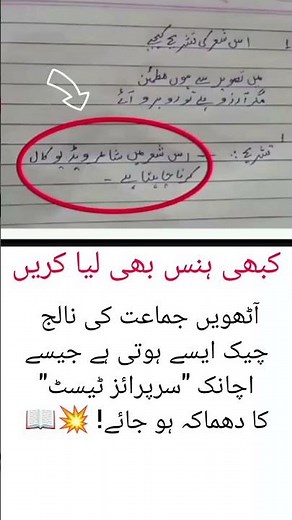 اس شعر کی تشریح کیجیے
میں تصویر سے ہوں مطمئن
مگر آرزو ہے تو روبرو آئے
تشریح :- اس شعر میں شاعر ویڈیو کال
کرنا چاہتا ہے -
کبھی ہنس بھی لیا کریں
آٹھویں جماعت کی نالج
چیک ایسے ہوتی ہے جیسے
اچانک "سرپرائز ٹیسٹ"
کا دھماکہ ہو جائے! 💥📖